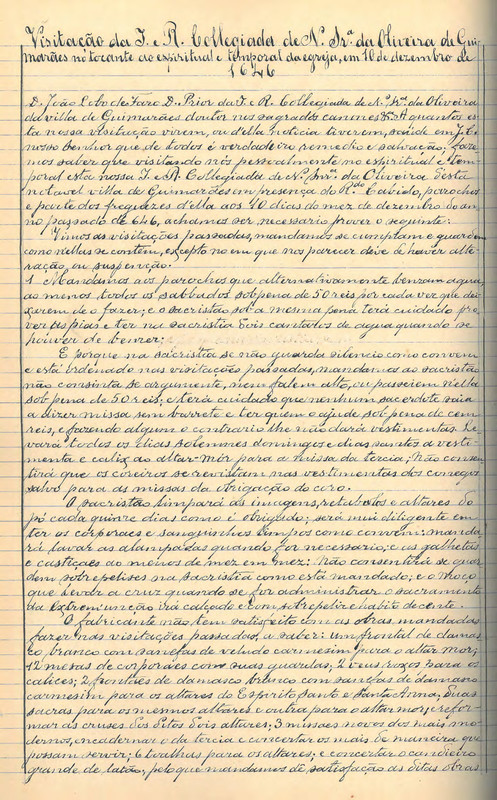 Visitação da I. e R. Collegiada de N.ª Sr.ª da Oliveira de Gui-
marães no tocante ao espiritual e temporal da egreja, em 10 de dezembro de
1646
D. João Lobo de Faro D. Prior da I. e R. Collegiada de N.ª Sr.ª da Oliveira
da villa de Guimarães doutor nos sagrados canones &.ª A quantos es-
ta nossa visitação virem, ou d'ella noticia tiverem, saúde em J. C.
nosso Senhor que de todos é verdadeiro remedio e salvação. Faze-
mos saber que visitando nós pessoalmente no espiritual e tem-
poral esta nossa I. e R. Collegiada de N.ª Snr.ª da Oliveira d'esta
notavel villa de Guimarães em presença do R.do Cabido, parochos
e parte dos freguezes d'ella aos 10 dias do mez de dezembro do an-
no passado de 646, achamos ser necessario prover o seguinte:
Vimos as visitações passadas, mandamos se cumpram e guardem
como n'ellas se contém, excepto no em que nos parecer deve de haver alte-
ração, ou suspenção.
1 Mandamos aos parochos que alternativamente benzam a agua,
ao menos todos os sabbados sob pena de 50 reis por cada vez que dei-
xarem de o fazer; e o sacristão sob a mesma pena terá cuidado pro-
ver as pias e ter na sacristia dois cantaros de agua quando se
houver de benzer;
E porque na sacristia se não guarda silencio como convem
e está ordenado nas visitações passadas, mandamos ao sacristão
não consinta se argumente, nem falem alto, ou passeiem n'ella
sob pena de 50 reis; e terá cuidado que nenhum sacerdote saia
a dizer missa sem barrete e ter quem o ajude sob pena de cem
reis, e fazendo algum o contrario lhe não dará vestimentas. Le-
vará todos os dias solemnes domingos e dias santos a vesti-
menta e calix ao altar-mór para a missa da tercia; não consen-
tirá que os coreiros se revistam nas vestimentas dos conegos
salvo para as missas da obrigação do coro.
O sacristão limpará as imagens, retabolos e altares do
pó cada quinze dias como é obrigado; será mui diligente em
ter os corporaes e sanguinhos limpos como convem; manda-
rá lavar as alampadas quando for necessario; e as galhetas
e castiçaes ao menos de mez em mez. Não consentirá se guar-
dem sobrepelizes na sacristia como está mandado; e o moço
que levar a cruz quando se for administrar o sacramento
da extrem'unção irá calçado e com sobrepeliz e habito decente.
O fabricante não tem satisfeito com as obras mandadas
fazer nas visitações passadas, a saber: um frontal de damas-
co branco com sanefas de veludo carmesim para o altar mór;
12 mesas de corporaes com suas guardas; 2 veus roxos para os
calices; 2 frontaes de damasco branco com sanefas de damasco
carmesim para os altares do Espirito Santo e Santa Anna, duas
sacras para os mesmos altares e outra para o altar mór, e refor-
mar as cruses dos ditos dois altares; 3 missaes novos dos mais mo-
dernos, encadernar o da tercia e concertar os mais de maneira que
possam servir; 6 toalhas para os altares; e concertar o candieiro
grande de latão; pelo que mandamos dê satisfação as ditas obras